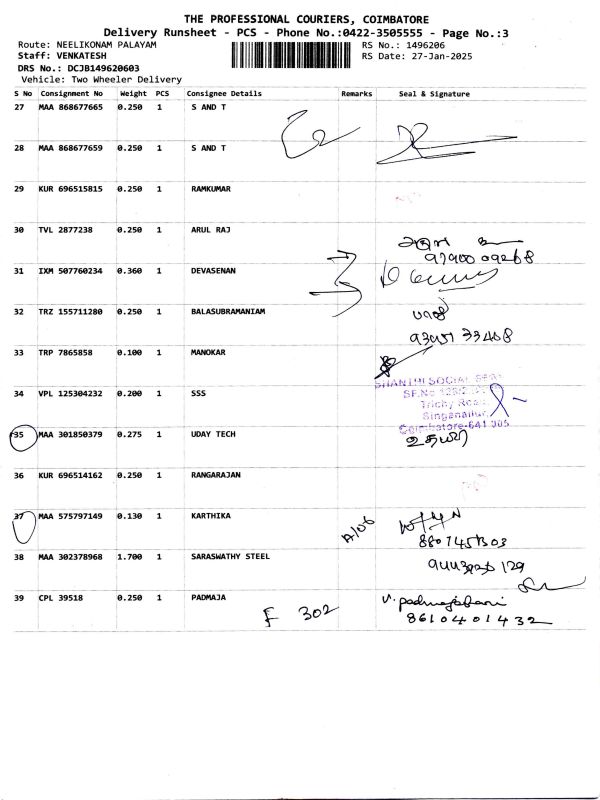 THE PROFESSIONAL COURIERS, COIMBATORE
Delivery Runsheet - PCS - Phone No.:0422-3505555 - Page No.:3
Route: NEELIKONAM PALAYAM RS No.: 1496206
Staff: VENKATESH RS Date: 27-Jan-2025
DRS No.: DCJB149620603
Vehicle: Two Wheeler Delivery
S No Consignment No Weight PCS Consignee Details Remarks Seal & Signature
27 MAA 868677665 0.250 1 S AND T
28 MAA 868677659 0.250 1 S AND T
29 KUR 696515815 0.250 1 RAMKUMAR
30 TVL 2877238 0.250 1 ARUL RAJ
31 IXM 507760234 0.360 1 DEVASENAN
32 TRZ 155711280 0.250 1 BALASUBRAMANIAM
33 TRP 7865858 0.100 1 MANOKAR
34 VPL 125304232 0.200 1 SSS
SHANTHI SOCIAL
Trichy Road,
Singanallur,
Coimbatore-641 005
35 MAA 301850379 0.275 1 UDAY TECH
36 KUR 696514162 0.250 1 RANGARAJAN
37 MAA 575797149 0.130 1 KARTHIKA
38 MAA 302378968 1.700 1 SARASWATHY STEEL
39 CPL 39518 0.250 1 PADMAJA
F 302
8610401432